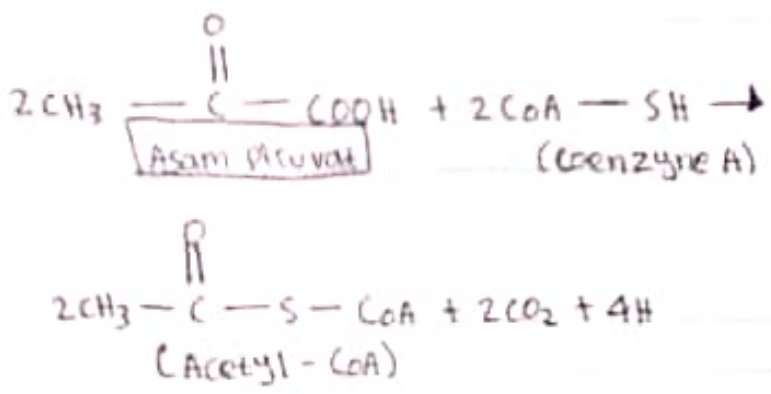 O
||
2CH₃ — C — COOH + 2CoA — SH →
Asam Piruvat (Coenzyne A)
O
||
2CH₃ — C — S — CoA + 2CO₂ + 4H
(Acetyl - CoA)